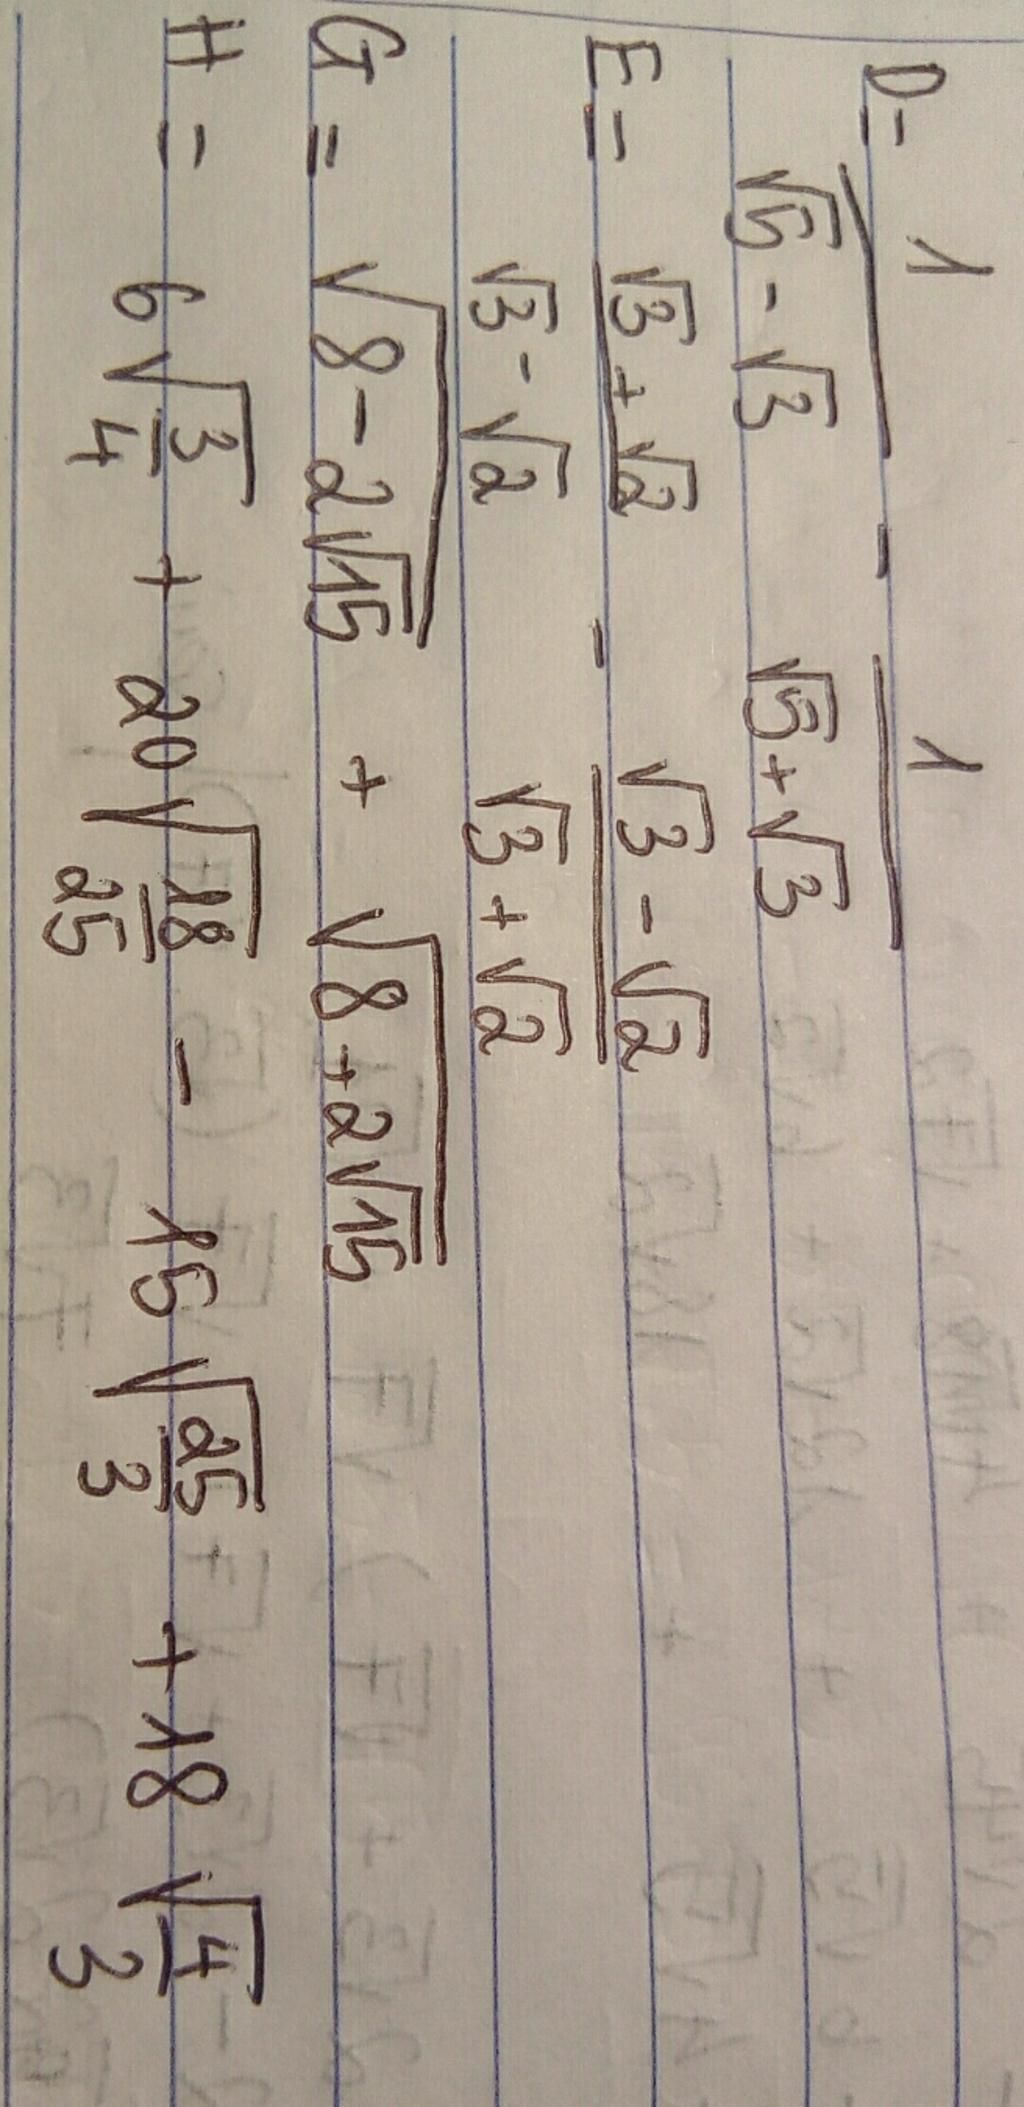 D = 1/(√5 - √3) - 1/(√5 + √3)
E = (√3 + √2)/(√3 - √2) - (√3 - √2)/(√3 + √2)
G = √(8 - 2√15) + √(8 + 2√15)
H = 6√(3/4) + 20√(18/25) - 15√(25/3) + 18√(4/3)